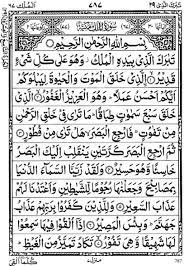 تَبٰرَكَ الَّذِىْ ٢٩
٧٨٧
اَلْمُلْك ٦٧
بِسْمِ اللهِ الرَّحْمٰنِ الرَّحِيْمِ
تَبٰرَكَ الَّذِىْ بِيَدِهِ الْمُلْكُ وَهُوَ عَلٰى كُلِّ شَىْءٍ
قَدِيْرُ ۝ الَّذِىْ خَلَقَ الْمَوْتَ وَالْحَيٰوةَ لِيَبْلُوَكُمْ
اَيُّكُمْ اَحْسَنُ عَمَلًا وَهُوَ الْعَزِيْزُ الْغَفُوْرُ ۝ الَّذِىْ
خَلَقَ سَبْعَ سَمٰوٰتٍ طِبَاقًا مَا تَرٰى فِىْ خَلْقِ الرَّحْمٰنِ
مِنْ تَفٰوُتٍ فَارْجِعِ الْبَصَرَ هَلْ تَرٰى مِنْ فُطُوْرٍ ۝
ثُمَّ ارْجِعِ الْبَصَرَ كَرَّتَيْنِ يَنْقَلِبْ اِلَيْكَ الْبَصَرُ
خَاسِئًا وَّهُوَ حَسِيْرٌ ۝ وَلَقَدْ زَيَّنَّا السَّمَآءَ الدُّنْيَا
بِمَصَابِيْحَ وَجَعَلْنٰهَا رُجُوْمًا لِّلشَّيٰطِيْنِ وَاَعْتَدْنَا لَهُمْ
عَذَابَ السَّعِيْرِ ۝ وَلِلَّذِيْنَ كَفَرُوْا بِرَبِّهِمْ عَذَابُ
جَهَنَّمَ وَبِئْسَ الْمَصِيْرُ ۝ اِذَآ اُلْقُوْا فِيْهَا سَمِعُوْا
لَهَا شَهِيْقًا وَّهِىَ تَفُوْرُ ۝ تَكَادُ تَمَيَّزُ مِنَ الْغَيْظِ
كُلَّمَآ اُلْقِىَ